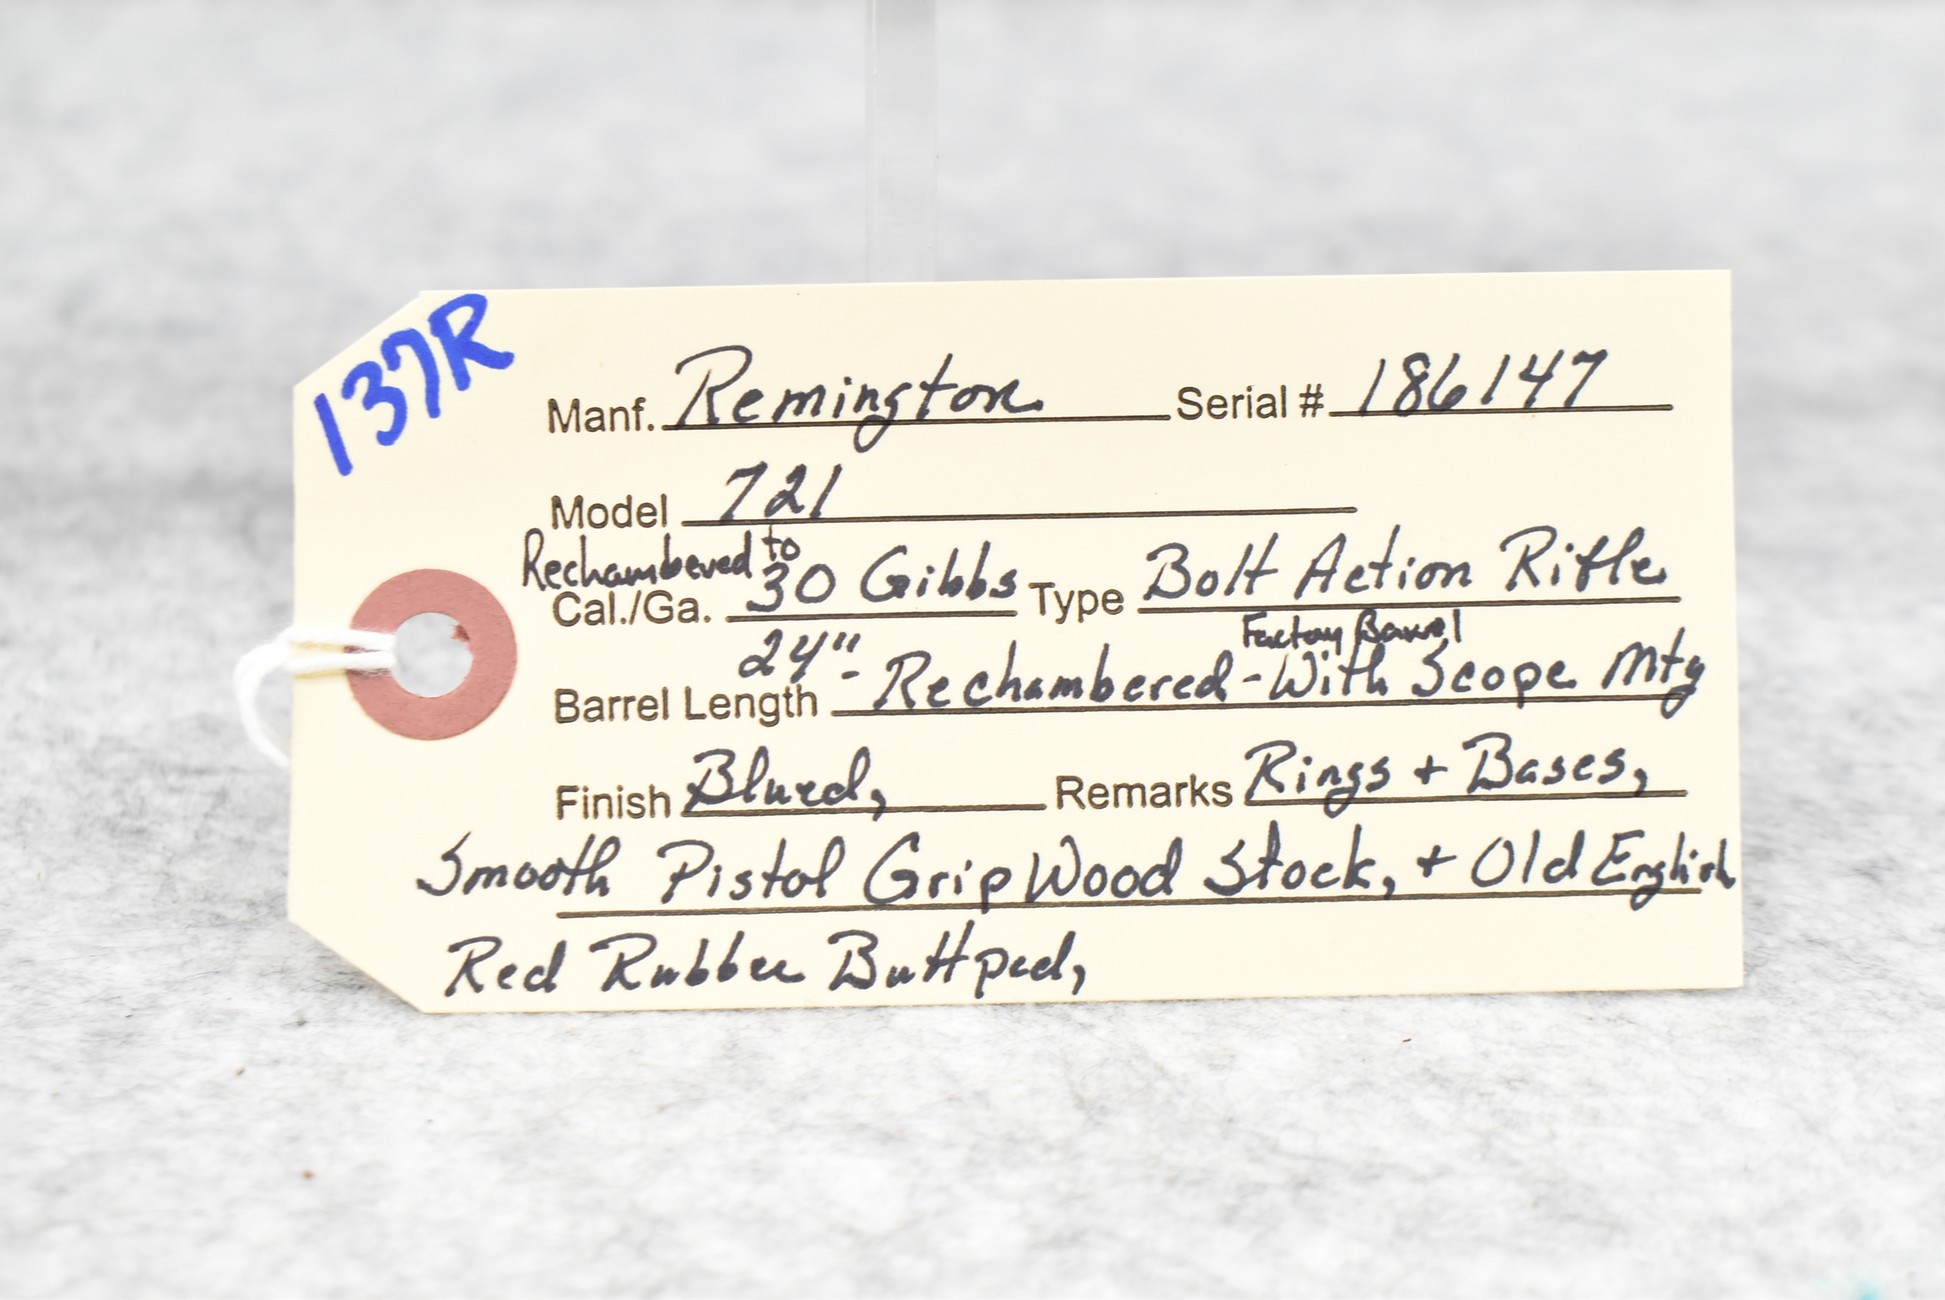 137R
Manf. Remington Serial # 186147
Model 721
Rechambered to
Cal./Ga. 30 Gibbs Type Bolt Action Rifle
Factory Barrel
Barrel Length 24"- Rechambered - With Scope Mtg
Finish Blued, Remarks Rings + Bases,
Smooth Pistol Grip Wood Stock, + Old English
Red Rubber Buttpad,